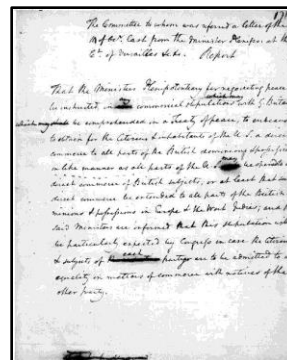 The Committee to whom was referred a letter of the
from the Minister Plenipo. at the
Ct. of Versailles
Report
That the Ministers Plenipotentiary for negotiating peace
be instructed in commercial stipulations with G Britain
which may be comprehended in a Treaty of peace, to endeavor
to obtain for the Citizens & inhabitants of the U. S. a direct
commerce to all parts of the British dominions & possessions
in like manner as all parts of the U. S. may be opened to
direct commerce of British subjects, or at least that such
direct commerce be extended to all parts of the British
minions & possessions in Europe & the West Indies; and
said Ministers are informed that this stipulation will
be particularly expected by Congress in case the Citizens
& subjects of each party are to be admitted to an
equality in matters of commerce with natives of the
other party.